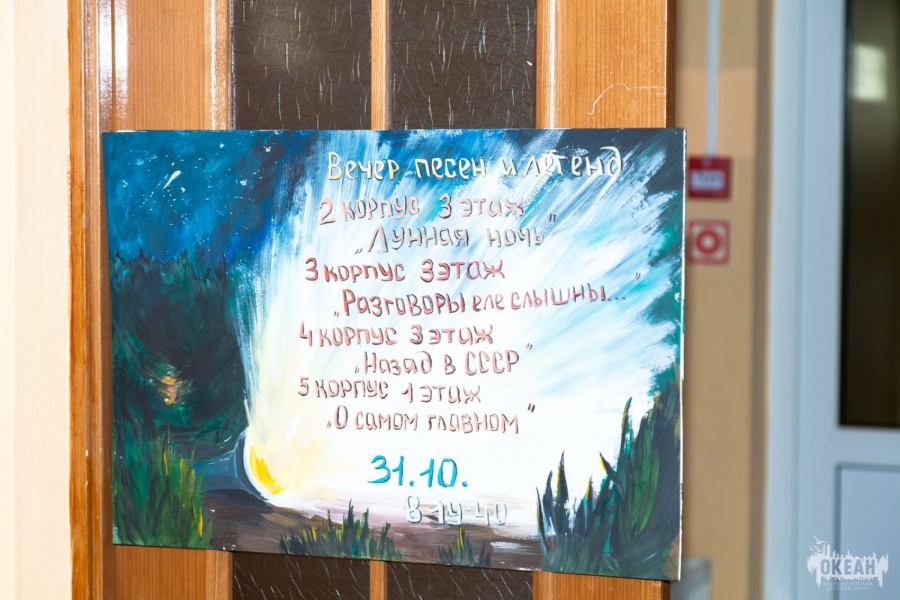 Вечер песен и легенд
2 корпус 3 этаж
„Лунная ночь"
3 корпус 3 этаж
„Разговоры еле слышны..."
4 корпус 3 этаж
„Назад в СССР"
5 корпус 1 этаж
„О самом главном"
31.10.
В 19 40
ОКЕАН